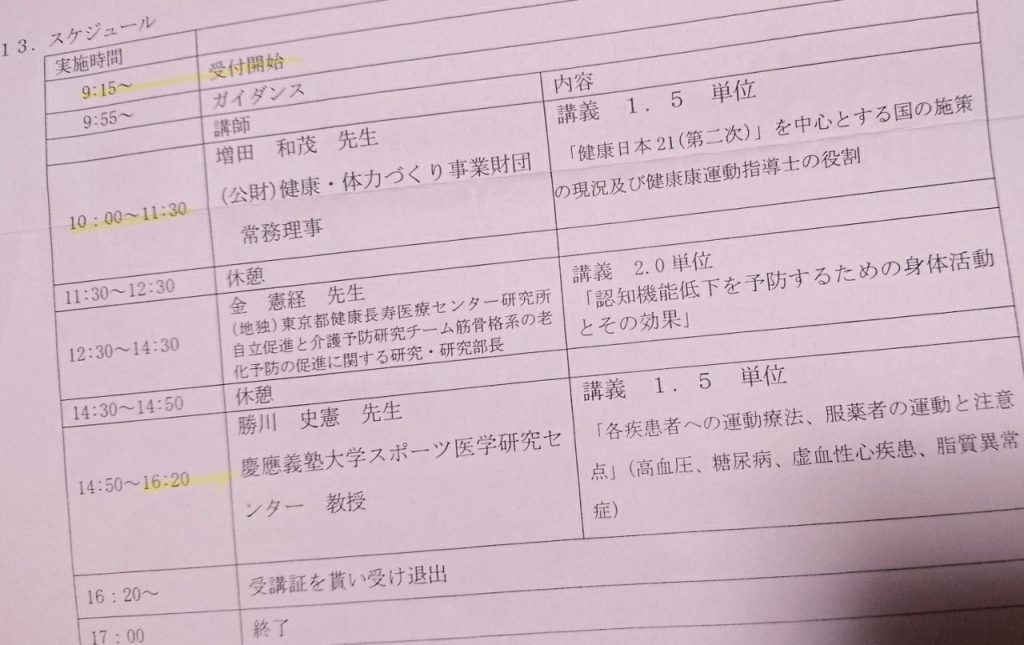 13. スケジュール
実施時間
9:15~ 受付開始
9:55~ ガイダンス
講師 内容
10:00~11:30
増田 和茂 先生
(公財)健康・体力づくり事業財団
常務理事
講義 1.5 単位
「健康日本21(第二次)」を中心とする国の施策
の現況及び健康康運動指導士の役割
11:30~12:30 休憩
12:30~14:30
金 憲経 先生
(地独)東京都健康長寿医療センター研究所
自立促進と介護予防研究チーム筋骨格系の老
化予防の促進に関する研究・研究部長
講義 2.0単位
「認知機能低下を予防するための身体活動
とその効果」
14:30~14:50 休憩
14:50~16:20
勝川 史憲 先生
慶應義塾大学スポーツ医学研究セ
ンター 教授
講義 1.5 単位
「各疾患者への運動療法、服薬者の運動と注意
点」(高血圧、糖尿病、虚血性心疾患、脂質異常
症)
16:20~ 受講証を貰い受け退出
17:00 終了